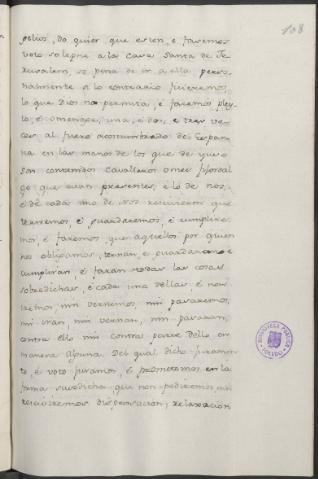 108
gelios, do quier que esten, e faremos
voto solepne a la Casa Santa de Je-
rusalem, so pena de ir a ella perso-
nalmente si lo contrario ficieremos,
lo que Dios no permita, e faremos pley-
to, e omenage, una, e dos, e tres ve-
ces al fuero acostumbrado de Espa-
ña en las manos de los que de yuso
son contenidos Cavalleros omes fijosdal
go que eran presentes, e lo de nos,
e de cada uno de nos recivieron que
ternemos, e guardaremos, e cumplire-
mos, e faremos que aquellos por quien
nos obligamos, ternan e guardaran e
cumpliran, e faran todas las cosas
sobredichas, e cada una dellas, e non
iremos, nin vernemos, nin pasaremos,
nin iran, nin vernan, nin pasaran,
contra ello nin contra parte dello en
manera alguna. Del qual dicho juramen-
to, e voto juramos, e prometemos en la
forma susodicha, que non pediremos, nin
reciviremos dispensacion, relaxacion
BIBLIOTECA PUBLICA
TOLEDO